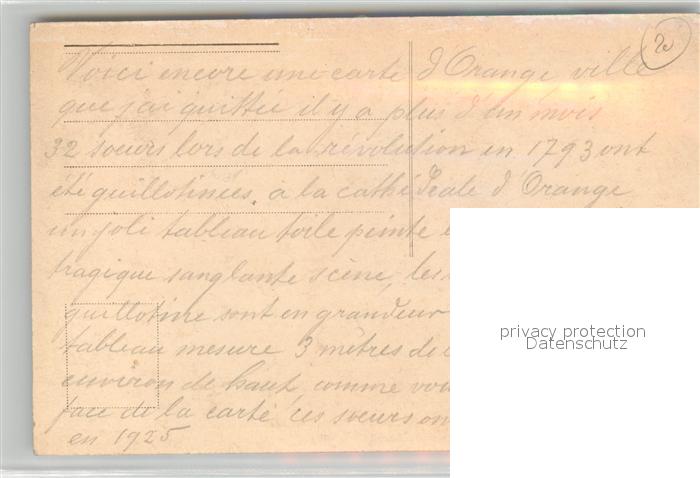 2
Voici encore une carte d'Orange ville
que j'ai quittée il y a plus d'un mois
32 soeurs lors de la révolution en 1793 ont
été guillotinées, à la cathédrale d'Orange
un joli tableau toile peinte
tragique sanglante scène, les
guillotine sont en grandeur
tableau mesure 3 mètres de
environ de haut comme
face de la carte ces soeurs
en 1925
privacy protection
Datenschutz